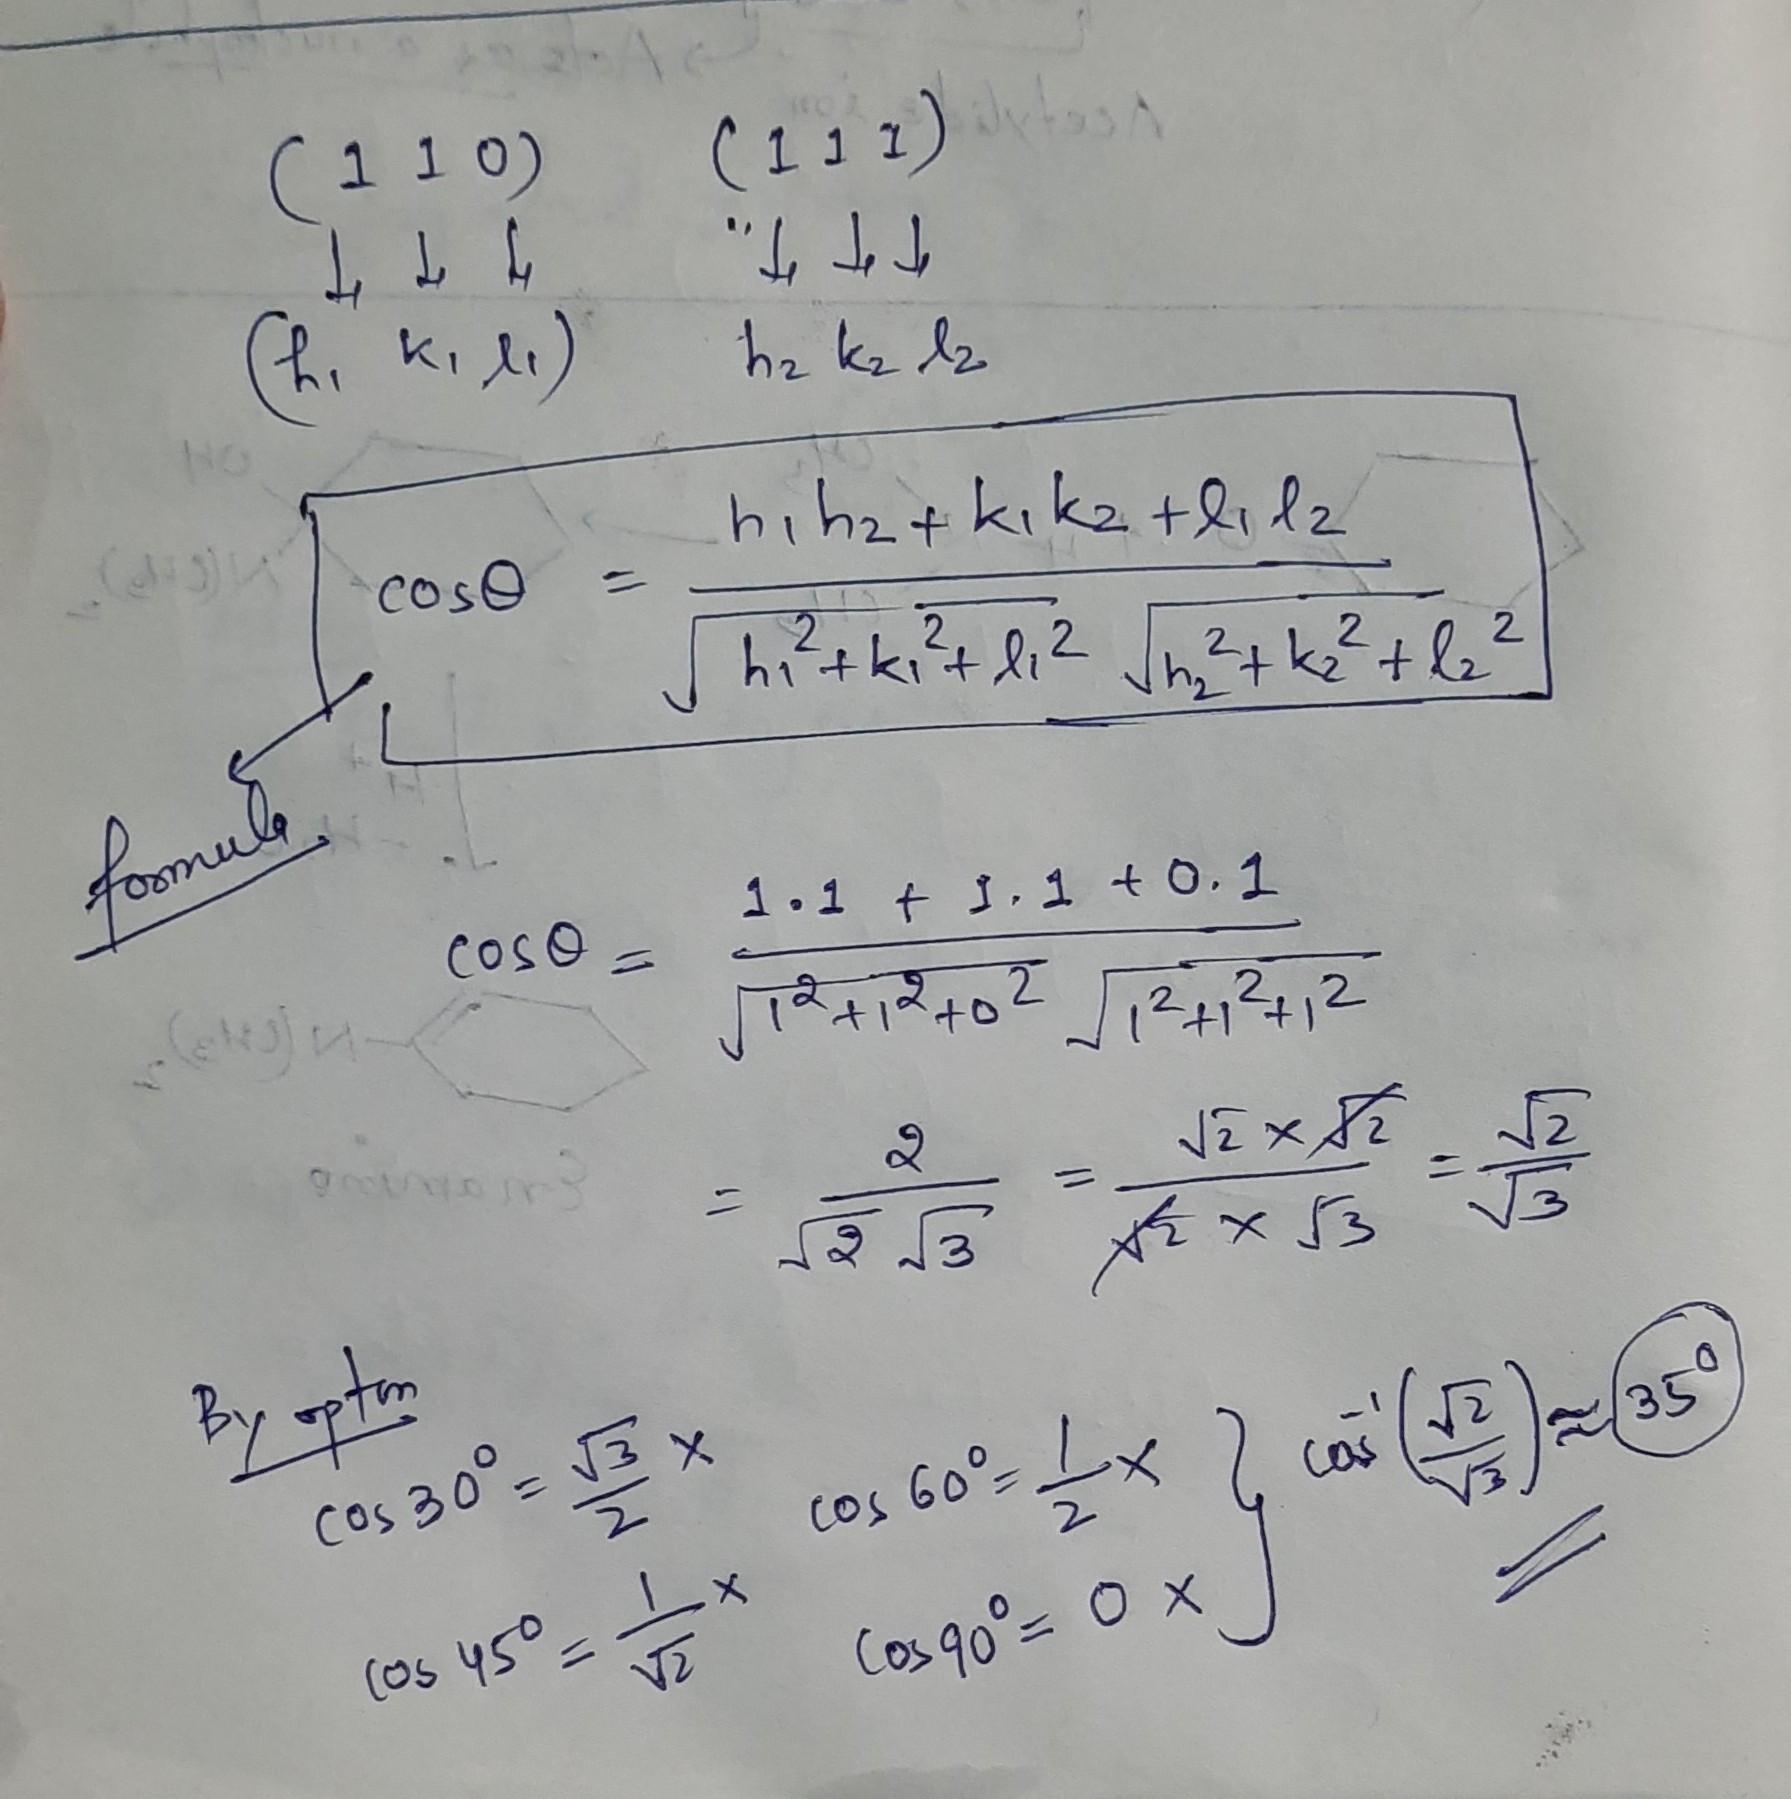 (1 1 0) (1 1 1)
↓ ↓ ↓ " ↓ ↓ ↓
(h₁ k₁ l₁) h₂ k₂ l₂
cosθ = (h₁h₂ + k₁k₂ + l₁l₂) / (√(h₁² + k₁² + l₁²) √(h₂² + k₂² + l₂²))
formula
cosθ = (1.1 + 1.1 + 0.1) / (√(1² + 1² + 0²) √(1² + 1² + 1²))
= 2 / (√2 √3) = (√2 × √2) / (√2 × √3) = √2 / √3
By opton
cos 30° = √3/2 × cos 60° = 1/2 × } cos⁻¹(√2/√3) ≈ 35°
cos 45° = 1/√2 × cos 90° = 0 ×